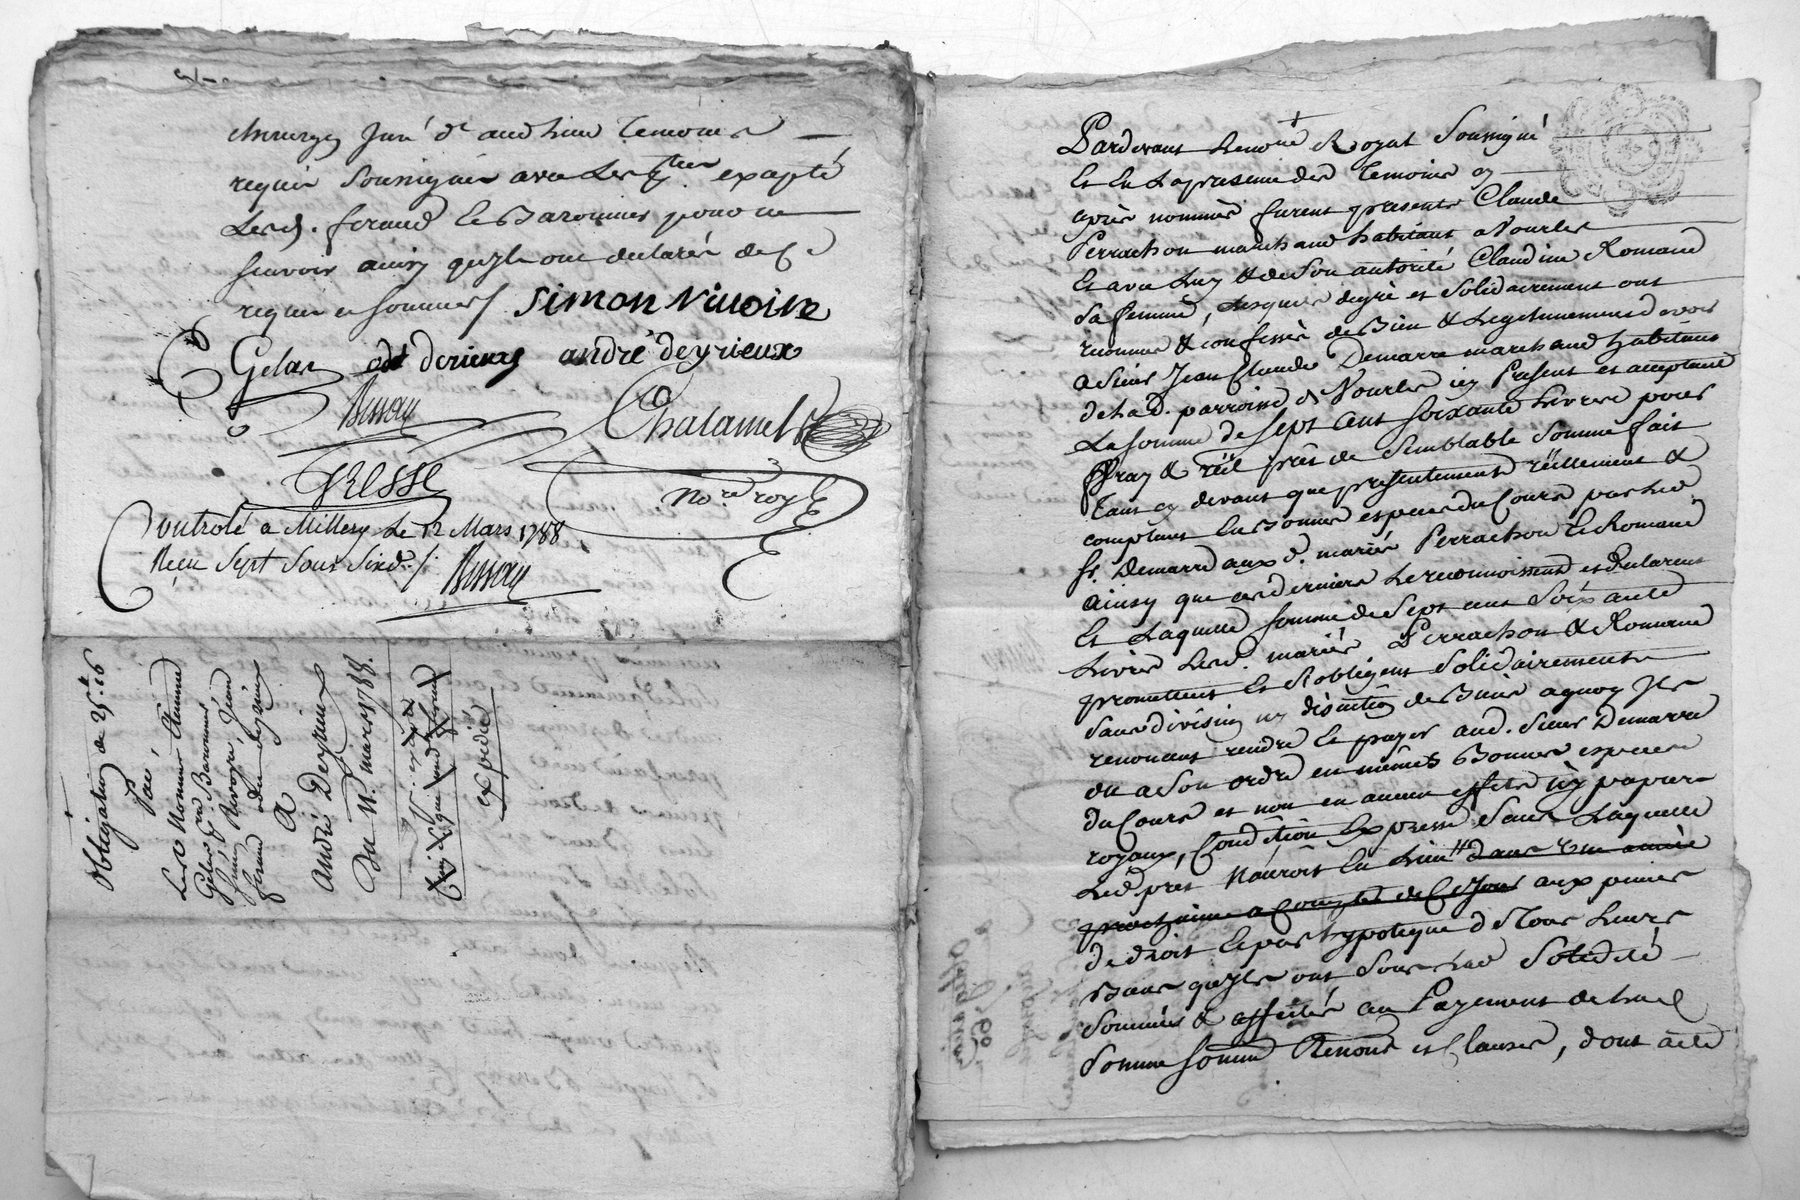 requis Soussignés avec les parties excepté
Lesd. feraud le Baronnier pour ne
scavoir ainsy qu'ils ont declarés de ce
requis et sommés /. Simon rivoire
Gelas andré deyrieux
Bussau
Chatamel
TRESSE
No.re roy
Controlé a Millery Le 12 Mars 1788
Reçu Sept Sous Six d. /. Bussau
Obligation de 25 16
Par
André Deyrieux
Du 11. mars 1788.
expédié
Pardevant Le no.re Royal Soussigné
Et En La presence des Temoins cy
après nommés furent presents Claude
Perrachon marchand habitant a Vourles
Et avec Luy & de Son autorité Claudine Romand
Sa femme, Lesquels de gré et Solidairement ont
reconnus & confessés de Bien & Legitimement devoir
a Sieur Jean Claude Demarre marchand habitant
de La d. parroisse de Vourles icy Present et acceptant
La somme de Sept Cent Soixante Livres pour
Vray & réel prêt de Semblable Somme fait
tant cy devant que presentement réellement &
comptant En Bonnes especes du Cours par Led.
Sr. Demarre aux d. mariés Perrachon Et Romand
ainsy que ces derniers Le reconnoissent et declarent
Et Laquelle somme de Sept cent Soixante
Livres Lesd. mariés Perrachon & Romand
promettent Et S'obligent Solidairement
Sans division ny discution de Biens a quoy Ils
renoncent rendre Et payer aud. Sieur Demarre
ou a Son ordre en mêmes Bonnes especes
du Cours et non en aucun effets ny papiers
royaux, Condition Expresse Sans Laquelle
Led. prêt N'auroit Eu Lieu dans Une année
prochaine a Compter de Ce Jour aux peines
de droit Et par hypoteque de Tous Leurs
Biens qu'ils ont Sous Lad. Solidité
Soumis & affectés au Payement de Lad.
Somme Soumis Renons et Clauses, dont acte